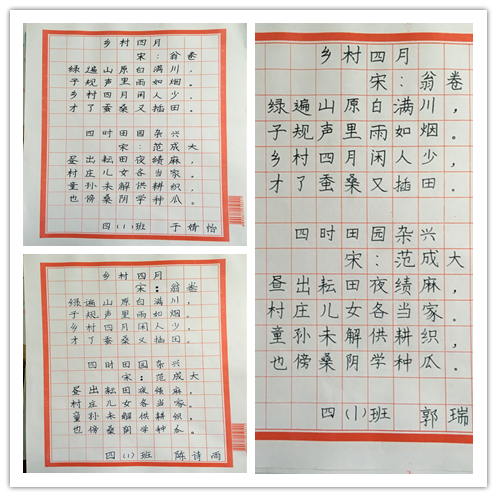 乡村四月
宋：翁卷
绿遍山原白满川，
子规声里雨如烟。
乡村四月闲人少，
才了蚕桑又插田。
四时田园杂兴
宋：范成大
昼出耘田夜绩麻，
村庄儿女各当家。
童孙未解供耕织，
也傍桑阴学种瓜。
四（1）班 于婧怡
乡村四月
宋：翁卷
绿遍山原白满川，
子规声里雨如烟。
乡村四月闲人少，
才了蚕桑又插田。
四时田园杂兴
宋：范成大
昼出耘田夜绩麻，
村庄儿女各当家。
童孙未解供耕织，
也傍桑阴学种瓜。
四（1）班 陈诗雨
乡村四月
宋：翁卷
绿遍山原白满川，
子规声里雨如烟。
乡村四月闲人少，
才了蚕桑又插田。
四时田园杂兴
宋：范成大
昼出耘田夜绩麻，
村庄儿女各当家。
童孙未解供耕织，
也傍桑阴学种瓜。
四（1）班 郭瑞